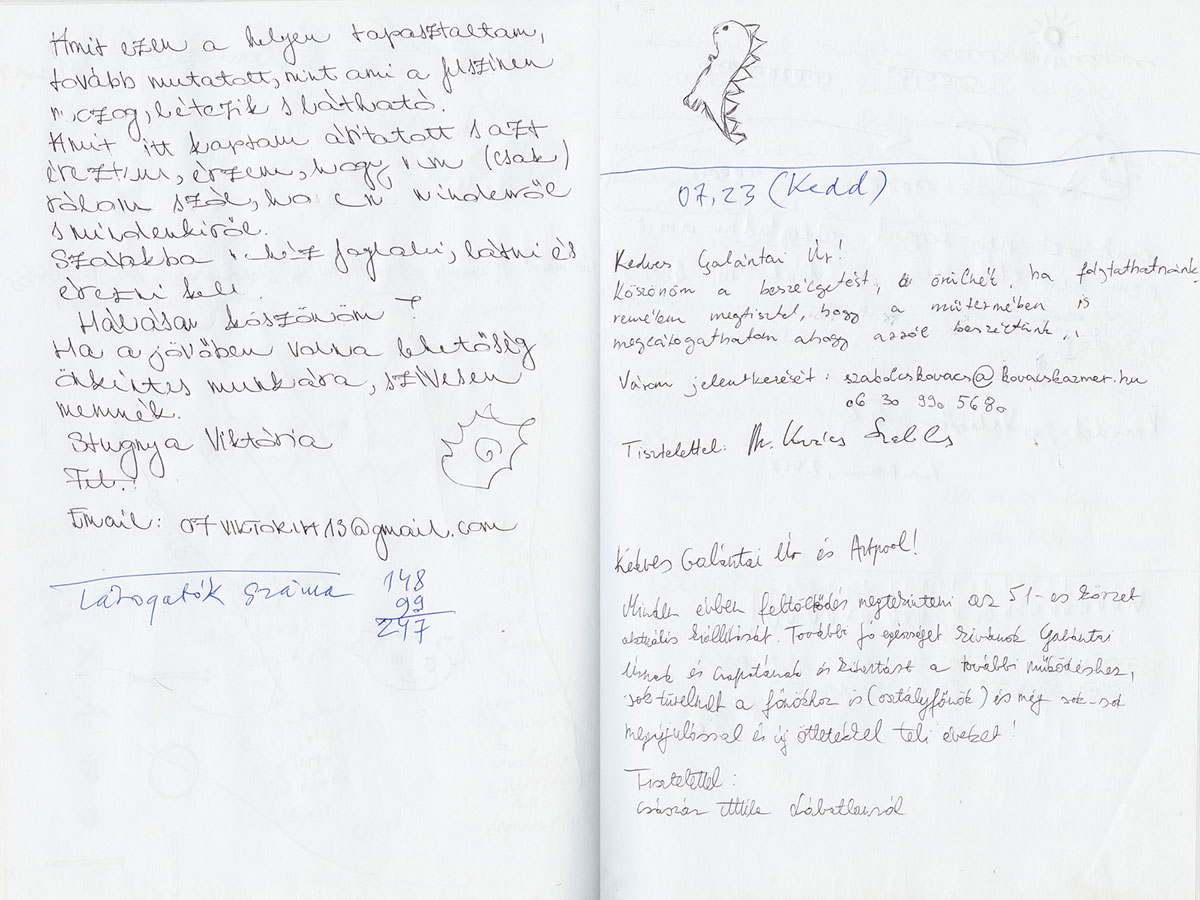 Amit ezen a helyen tapasztaltam,
tovább mutatott, mint ami a felszínen
mozog, létezik s látható.
Amit itt kaptam átitatott s azt
éreztem, érzem, hogy nem (csak)
rólam szól, ha en mindenről
s mindenkiről.
Szavakba nehéz foglalni, látni és
érezni kell.
Hálásan köszönöm
Ha a jövőben volna lehetőség
önkéntes munkára, szívesen
mennék.
Stugnya Viktória
Tel.:
Email: 07viktoria13@gmail.com
Látogatók száma 148
99
247
07,23 (Kedd)
Kedves Galántai Úr!
Köszönöm a beszélgetést, örülnék, ha folytathatnánk
remélem megtisztel, hogy a műtermében is
meglátogathatom ahogy arról beszéltünk.
Várom jelentkezését: szabolcskovacs@kovacskazmer.hu
06 30 990 5680
Tisztelettel: Kovács Szabolcs
Kedves Galántai Úr és Artpool!
Minden évben feltöltődés megtekinteni az 51-es körzet
aktuális kiállítását. További jó egészséget kívánok Galántai
Úrnak és csapatának és kitartást a további működéshez,
sok türelmet a főnökhöz is (osztályfőnök) és még sok-sok
megújulással és új ötletekkel teli éveket!
Tisztelettel:
Császár Attila Lábatlanról